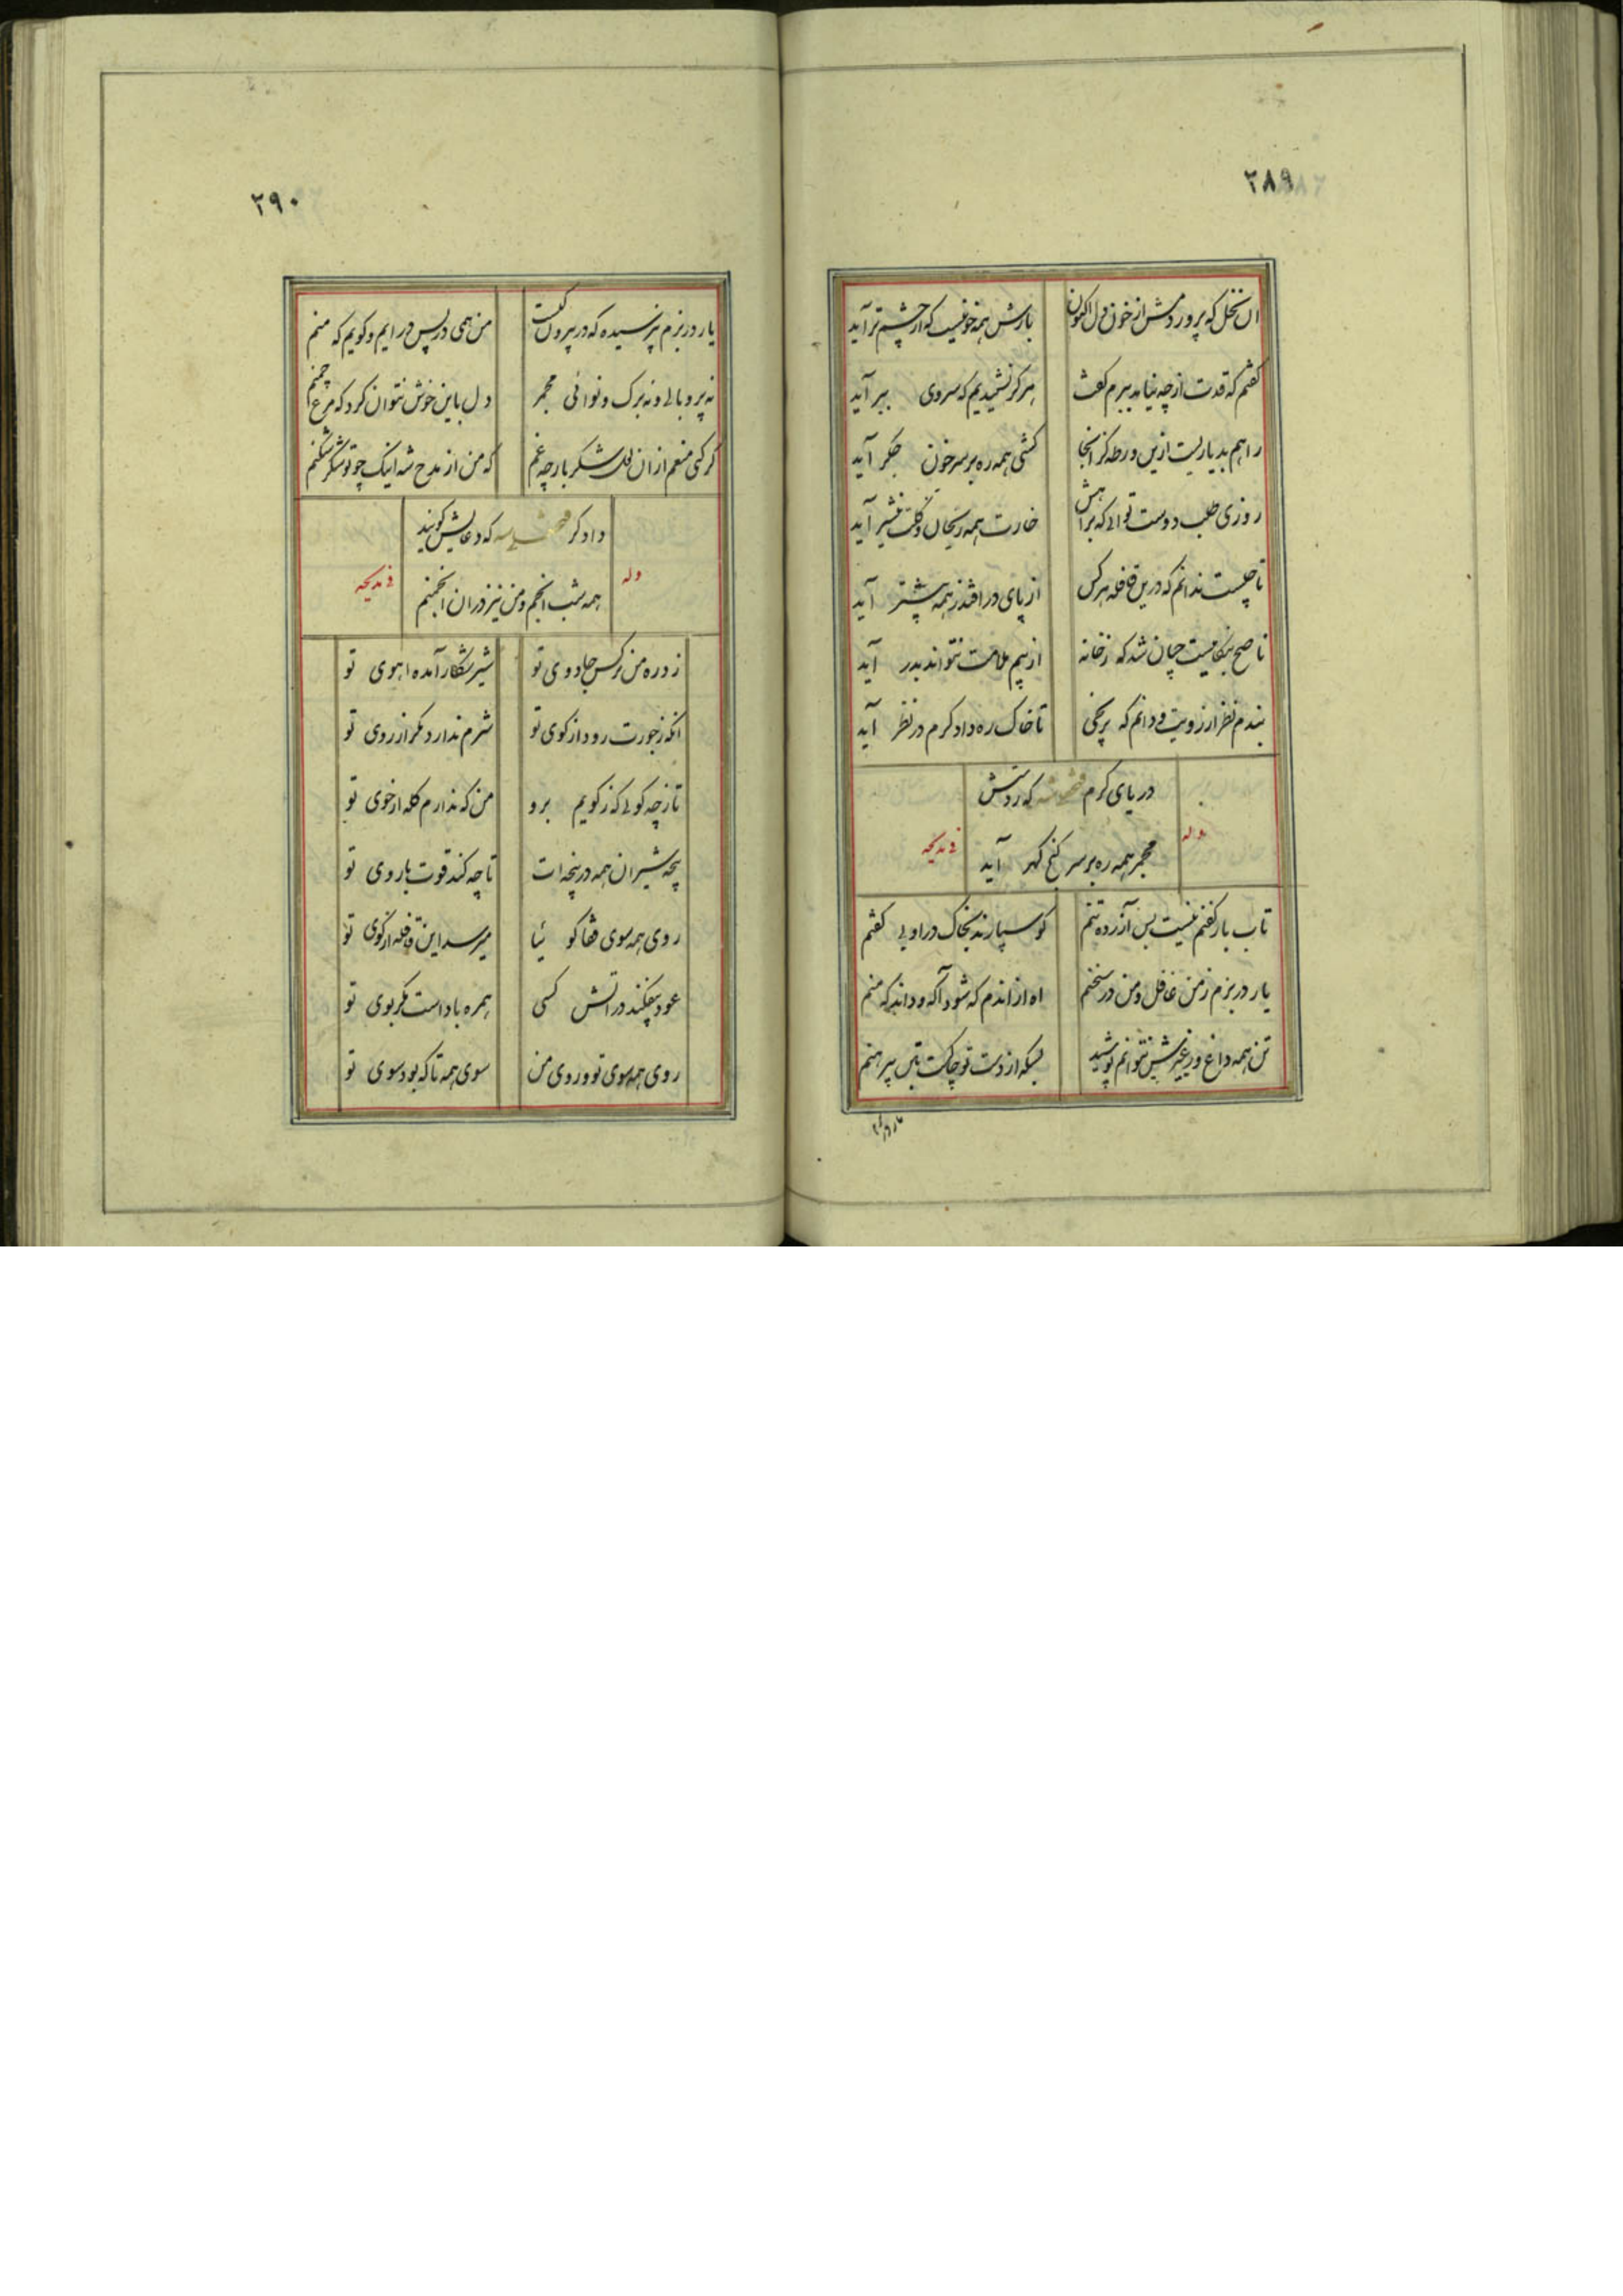 ۲۸۹
ان نخل که پروردمش از خون دل اکنون بارش همه خونیست که از چشم تر آید
گفتم که قدت از چه نیاید ببرم گفت هرگز نشنیدیم که سروی ببر آید
راهم بدیاریست ازین ورطه کز انجا کشتی همه ره بر سر خون جگر آید
روزی طلب دوست توانی که براهش خارت همه ریحان و گلت نیشتر آید
تا چیست ندانم که درین قافله هر کس از پای در افتد ز همه پیشتر آید
ناصح بنکامیست چنان شد که ز خانه از بیم ملامت نتواند بدر آید
بندم نظر از رویت و دانم که پر نجی تا خاک ره دادگرم در نظر آید
دریای کرم که ز دستش
وله
مجمر همه ره بر سر گنج گهر آید
فی مدیحه
تاب بار کفنم نیست بس آزرده تنم کو سپارند بخاک در او بی کفنم
یار در بزم ز من غافل و من در سخنم اه از اندم که شود آگه و داند که منم
تن همه داغ و ز غیرش نتوانم پوشید بسکه از دست تو چاکست بتن پیرهنم
یار در بزم
۲۹۰
یار در بزم پرسیده که در بیرون کیست من همی در پس در ایم و گویم که منم
نه پر و بالی و نه برک و نوائی مجمر دل باین خوش نتوان کرد که مرغ چمنم
گر کنی منعم از ان لعل شکر بار چه غم که من از مدح شه اینک چو تو شکر شکنم
دادگر که دعایش گویند
وله
همه شب انجم و من نیز در ان انجمنم
فی مدیحه
زد ره من نرگس جادوی تو شیر شکار آمده اهوی تو
انکه ز جورت رود از کوی تو شرم ندارد مگر از روی تو
تا ز چه گوئی که ز کویم برو من که ندارم گله از خوی تو
پنجه شیران همه در پنجه ات تا چه کند قوت بازوی تو
روی همه سوی قفا گوئیا میرسد این قافله از کوی تو
عود بیفکند در اتش کسی همره باد است مگر بوی تو
روی همه سوی تو و روی من سوی همه تا که بود سوی تو